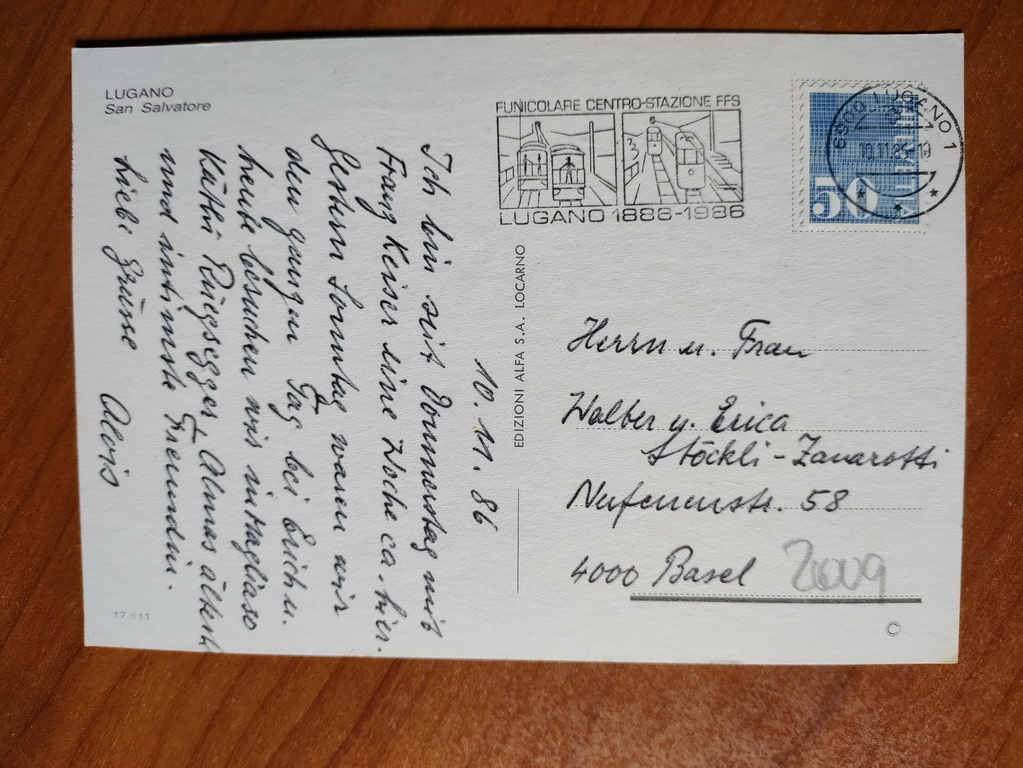 LUGANO
San Salvatore
10. 11. 86
Ich bin seit Donnerstag mit
Franz Keiser eine Woche ca. hier.
Gestern Sonntag waren wir
den ganzen Tag bei Erich u.
heute besuchen wir in Magliaso
Käthi Rüegsegger Almas älteste
und intimste Freundin.
Liebe Grüsse Alois
17811
EDIZIONI ALFA S.A. LOCARNO
FUNICOLARE CENTRO-STAZIONE FFS
LUGANO 1886-1986
HELVETIA
50
6900 LUGANO 1
10.11.86
Herrn u. Frau
Walter u. Erica
Stöckli-Zanarotti
Nufenenstr. 58
4000 Basel 2009
©